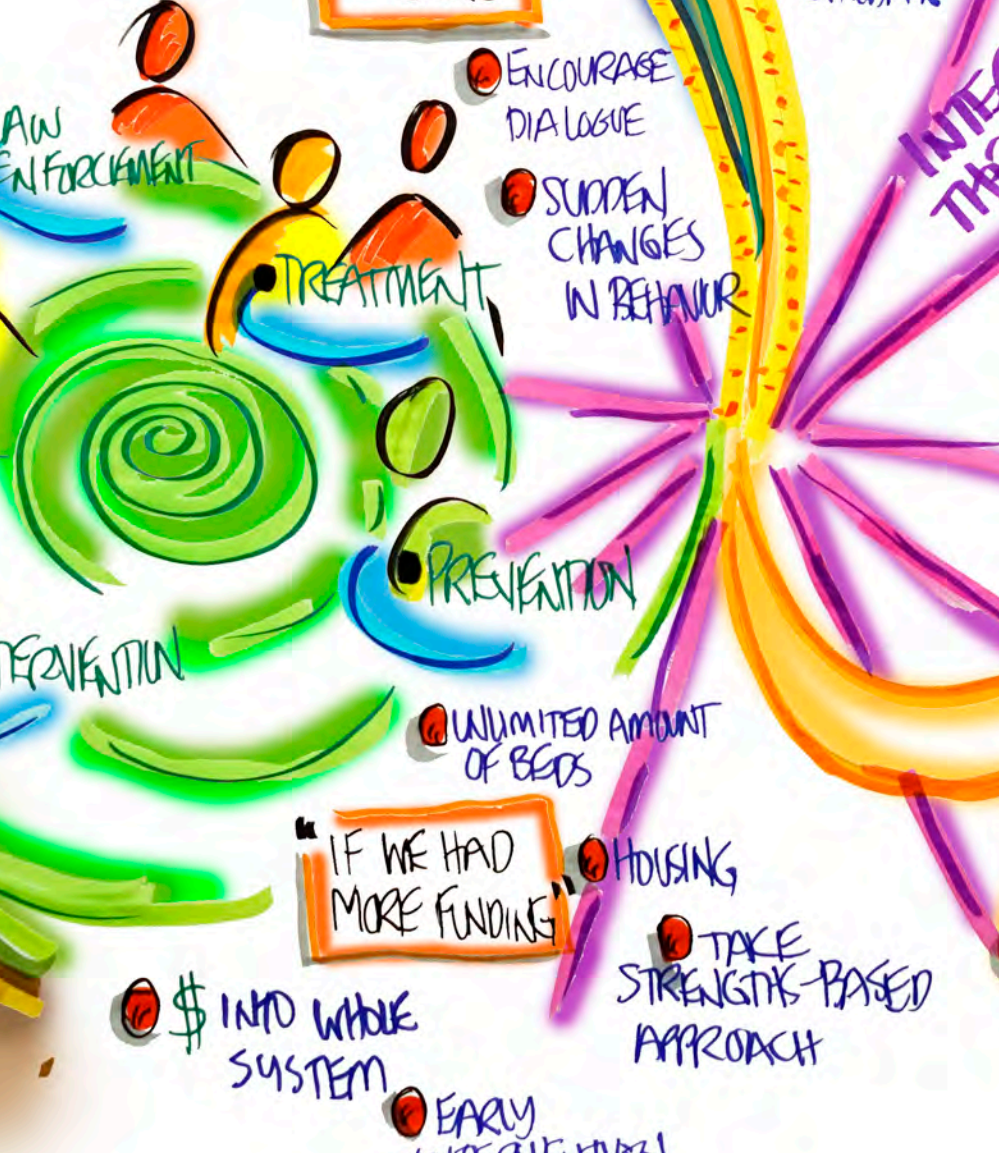 ENCOURAGE
DIALOGUE
SUDDEN
CHANGES
IN BEHAVIOR
AW
ENFORCEMENT
TREATMENT
PREVENTION
TERVENTION
UNLIMITED AMOUNT
OF BEDS
"IF WE HAD
MORE FUNDING"
HOUSING
TAKE
STRENGTHS-BASED
APPROACH
$ INTO WHOLE
SYSTEM
EARLY
INTE